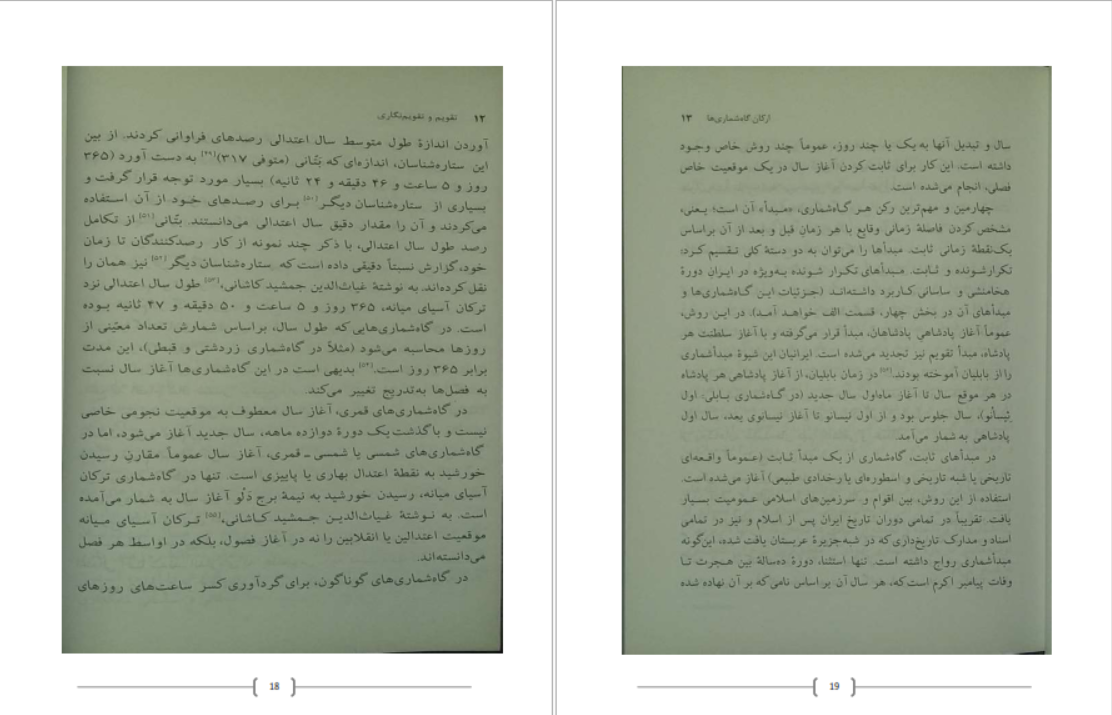 ۱۲ تقویم و تقویم‌نگاری
آوردن اندازهٔ طول متوسط سال اعتدالی رصدهای فراوانی کردند. از بین
این ستاره‌شناسان، اندازه‌ای که بتّانی (متوفی ۳۱۷)[۴۹] به دست آورد (۳۶۵
روز و ۵ ساعت و ۴۶ دقیقه و ۲۴ ثانیه) بسیار مورد توجه قرار گرفت و
بسیاری از ستاره‌شناسان دیگر[۵۰] برای رصدهای خود از آن استفاده
می‌کردند و آن را مقدار دقیق سال اعتدالی می‌دانستند. بتّانی[۵۱] از تکامل
رصد طول سال اعتدالی، با ذکر چند نمونه از کار رصدکنندگان تا زمان
خود، گزارش نسبتاً دقیقی داده است که ستاره‌شناسان دیگر[۵۲] نیز همان را
نقل کرده‌اند. به نوشتهٔ غیاث‌الدین جمشید کاشانی،[۵۳] طول سال اعتدالی نزد
ترکان آسیای میانه، ۳۶۵ روز و ۵ ساعت و ۵۰ دقیقه و ۴۷ ثانیه بوده
است. در گاه‌شماری‌هایی که طول سال، براساس شمارش تعداد معیّنی از
روزها محاسبه می‌شود (مثلاً در گاه‌شماری زردشتی و قبطی)، این مدت
برابر ۳۶۵ روز است.[۵۴] بدیهی است در این گاه‌شماری‌ها آغاز سال نسبت
به فصل‌ها به‌تدریج تغییر می‌کند.
در گاه‌شماری‌های قمری، آغاز سال معطوف به موقعیت نجومی خاصی
نیست و با گذشت یک دورهٔ دوازده ماهه، سال جدید آغاز می‌شود، اما در
گاه‌شماری‌های شمسی یا شمسی ـ قمری، آغاز سال عموماً مقارنِ رسیدن
خورشید به نقطهٔ اعتدال بهاری یا پاییزی است. تنها در گاه‌شماری ترکان
آسیای میانه، رسیدن خورشید به نیمهٔ برج دَلْو آغاز سال به شمار می‌آمده
است. به نوشتهٔ غیاث‌الدین جمشید کاشانی،[۵۵] ترکان آسیای میانه
موقعیت اعتدالین یا انقلابین را نه در آغاز فصول، بلکه در اواسط هر فصل
می‌دانسته‌اند.
در گاه‌شماری‌های گوناگون، برای گردآوری کسر ساعت‌های روزهای
18
ارکان گاه‌شماری‌ها ۱۳
سال و تبدیل آنها به یک یا چند روز، عموماً چند روش خاص وجود
داشته است. این کار برای ثابت کردن آغاز سال در یک موقعیت خاص
فصلی، انجام می‌شده است.
چهارمین و مهم‌ترین رکن هر گاه‌شماری، «مبدأ» آن است؛ یعنی،
مشخص کردن فاصلهٔ زمانی وقایع یا هر زمانِ قبل و بعد از آن براساس
یک نقطهٔ زمانی ثابت. مبدأها را می‌توان به دو دستهٔ کلی تقسیم کرد:
تکرارشونده و ثابت. مبدأهای تکرار شونده به‌ویژه در ایرانِ دورهٔ
هخامنشی و ساسانی کاربرد داشته‌اند (جزئیات این گاه‌شماری‌ها و
مبدأهای آن در بخش چهار، قسمت الف خواهد آمد). در این روش،
عموماً آغاز پادشاهیِ پادشاهان، مبدأ قرار می‌گرفته و با آغاز سلطنت هر
پادشاه، مبدأ تقویم نیز تجدید می‌شده است. ایرانیان این شیوهٔ مبدأشماری
را از بابلیان آموخته بودند.[۵۶] در زمان بابلیان، از آغاز پادشاهی هر پادشاه
در هر موقع سال تا آغاز ماه‌اول سال جدید (در گاه‌شماری بابلی: اول
نیسانو)، سال جلوس بود و از اول نیسانو تا آغاز نیسانوی بعد، سال اول
پادشاهی به شمار می‌آمد.
در مبدأهای ثابت، گاه‌شماری از یک مبدأ ثابت (عموماً واقعه‌ای
تاریخی یا شبه تاریخی و اسطوره‌ای یا رخدادی طبیعی) آغاز می‌شده است.
استفاده از این روش، بین اقوام و سرزمین‌های اسلامی عمومیت بسیار
یافت. تقریباً در تمامی دوران تاریخ ایران پس از اسلام و نیز در تمامی
اسناد و مدارک تاریخ‌داری که در شبه‌جزیرهٔ عربستان یافت شده، این‌گونه
مبدأشماری رواج داشته است. تنها استثنا، دورهٔ ده‌سالهٔ بین هجرت تا
وفات پیامبر اکرم است که، هر سال آن بر اساس نامی که بر آن نهاده شده
19